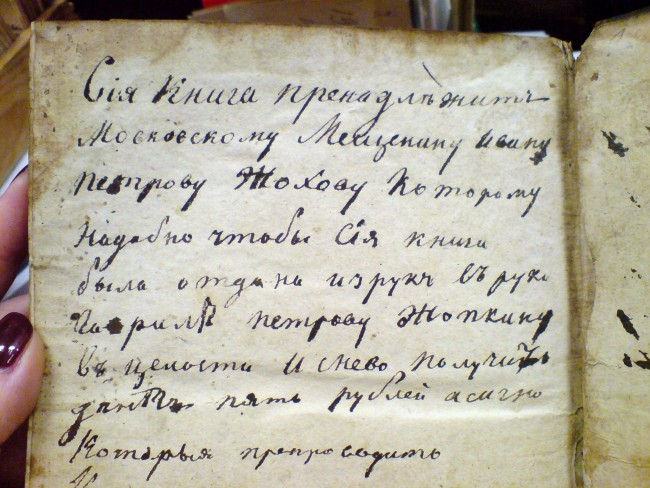 Сія Книга пренадлѣжитъ
Московскому Мещенину Ивану
петрову Жохову Которому
надобно чтобы Сія книга
была отдана изрукъ въ руки
Гаврилѣ петрову Жопкину
въ целости и снево получить
пять рублей асигно
Которыя препроводить